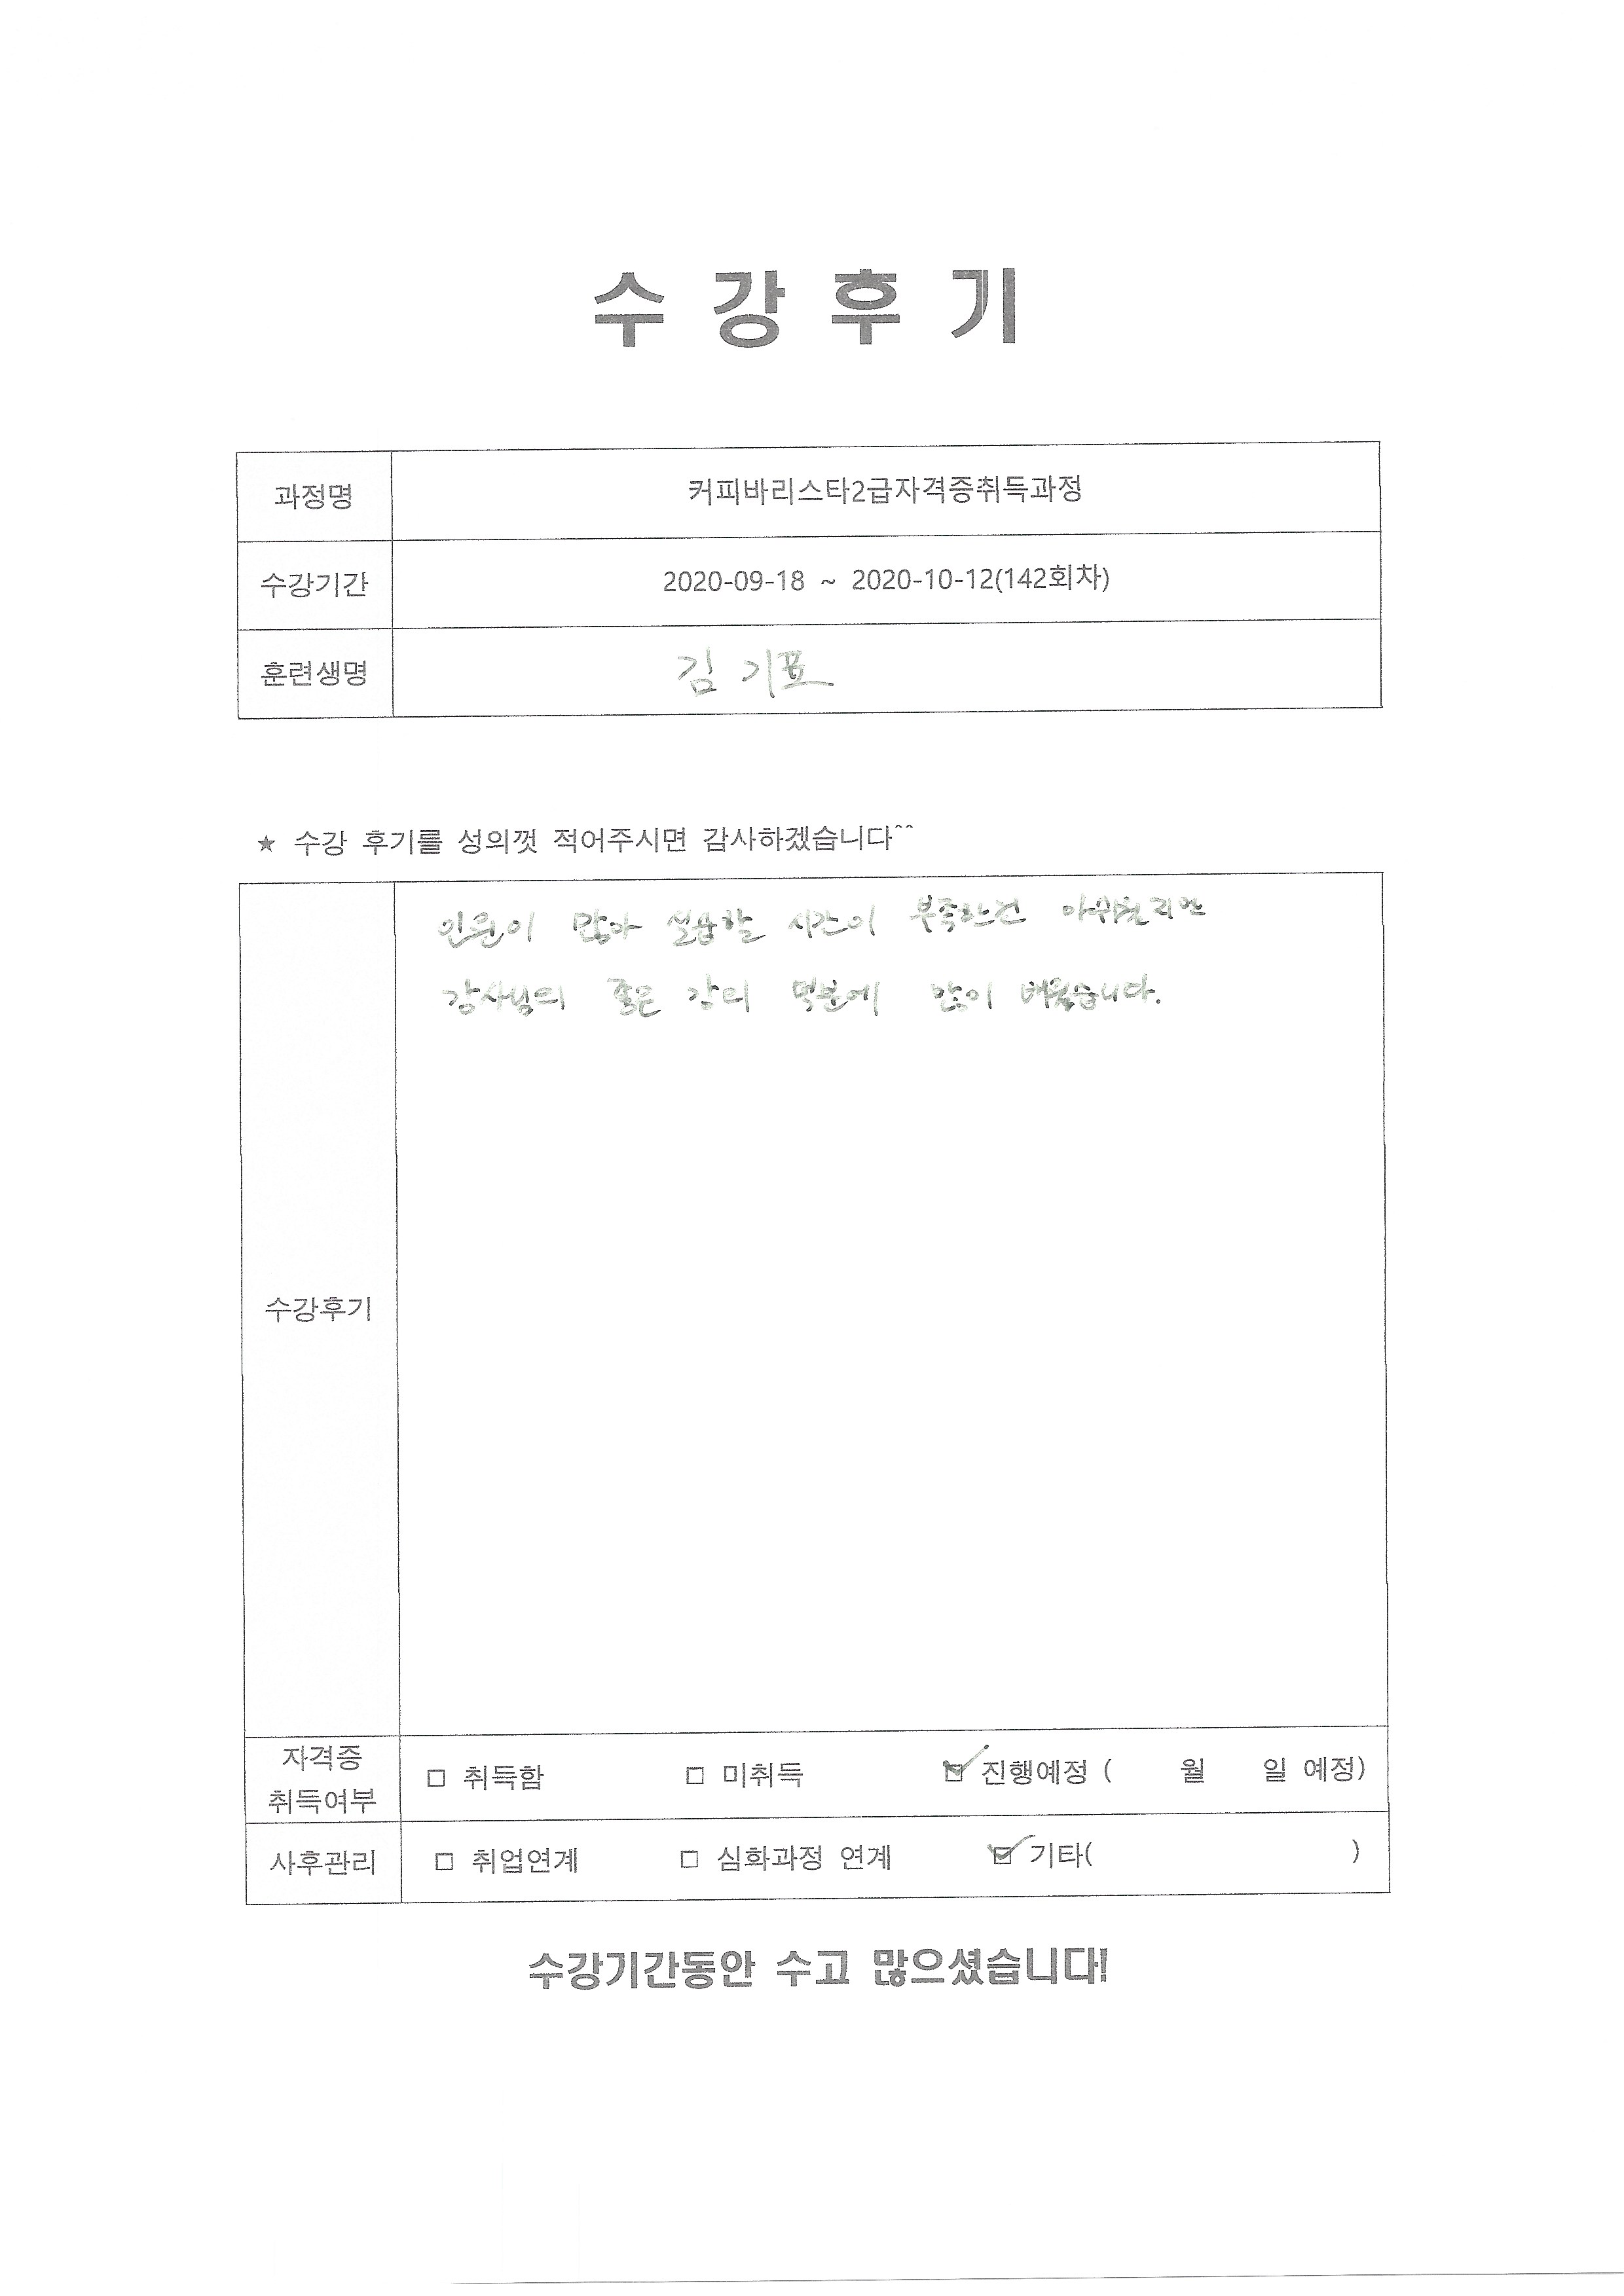 수강후기
과정명 커피바리스타2급자격증취득과정
수강기간 2020-09-18 ~ 2020-10-12(142회차)
훈련생명 김기표
★ 수강 후기를 성의껏 적어주시면 감사하겠습니다^^
인원이 많아 실습할 시간이 부족하는건 아쉬웠지만
강사님의 좋은 강의 덕분에 많이 배웠습니다.
수강후기
자격증
취득여부
□ 취득함 □ 미취득 ☑ 진행예정 ( 월 일 예정)
사후관리 □ 취업연계 □ 심화과정 연계 ☑ 기타( )
수강기간동안 수고 많으셨습니다!